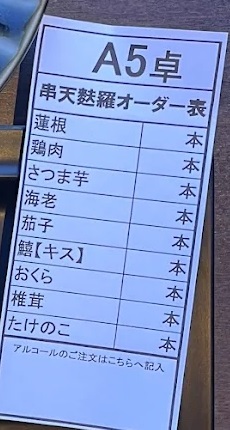 A5卓
串天麩羅オーダー表
蓮根 本
鶏肉 本
さつま芋 本
海老 本
茄子 本
鱚【キス】 本
おくら 本
椎茸 本
たけのこ 本
アルコールのご注文はこちらへ記入